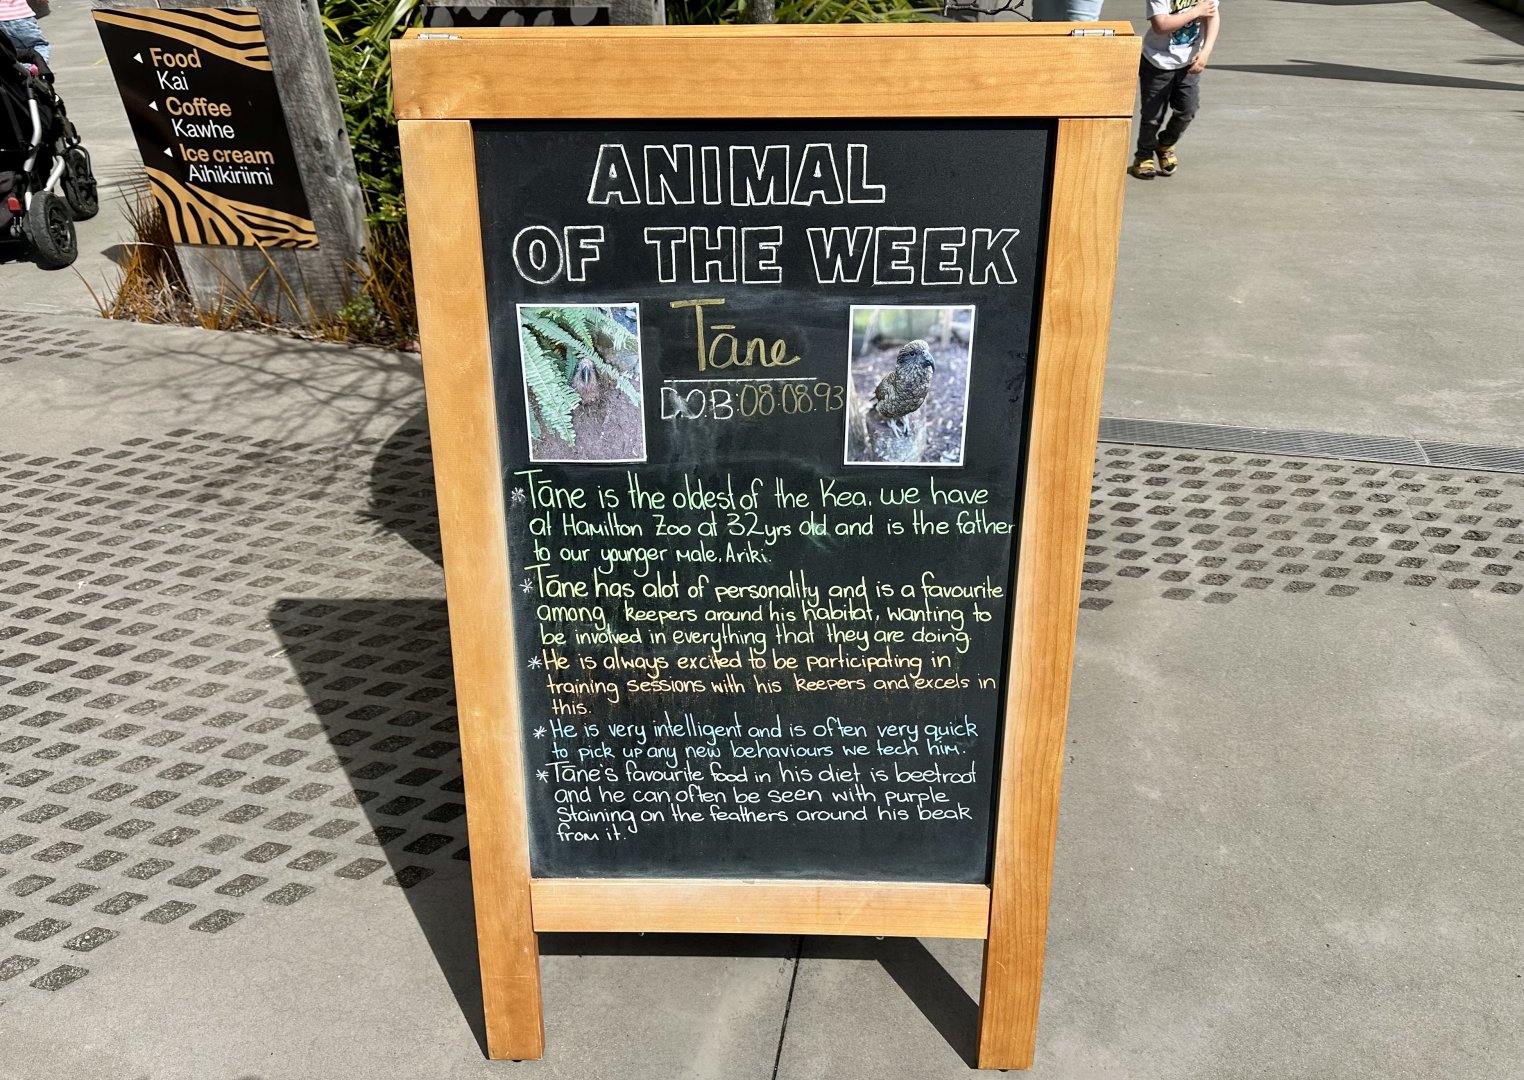 Food
Kai
Coffee
Kawhe
Ice cream
Aihikirīmi
ANIMAL
OF THE WEEK
Tāne
D.O.B: 08.08.93
* Tāne is the oldest of the Kea, we have
at Hamilton Zoo at 32yrs old and is the father
to our younger male, Ariki.
* Tāne has alot of personality and is a favourite
among keepers around his habitat, wanting to
be involved in everything that they are doing.
* He is always excited to be participating in
training sessions with his keepers and excels in
this.
* He is very intelligent and is often very quick
to pick up any new behaviours we tech him.
* Tāne's favourite food in his diet is beetroot
and he can often be seen with purple
staining on the feathers around his beak
from it.